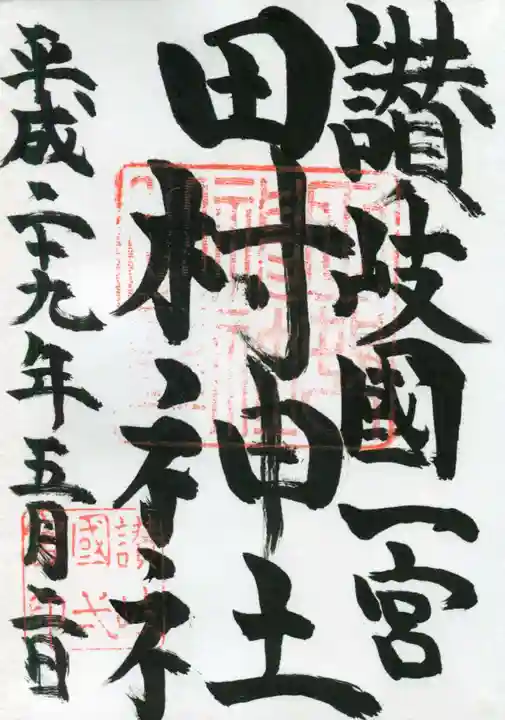 讃岐國一宮
田村神社
平成二十九年五月二日